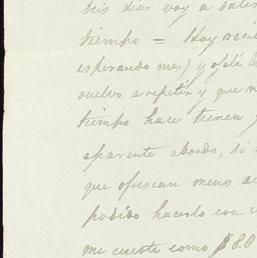 seis dias voy a salir
tiempo = Hoy reci
esperando mas) y ojalá
vuelvo a repetir y que n
tiempo hace tienen
aparente abordo, si
que ofrescan menos
podido hacerlo con
me cueste como $80